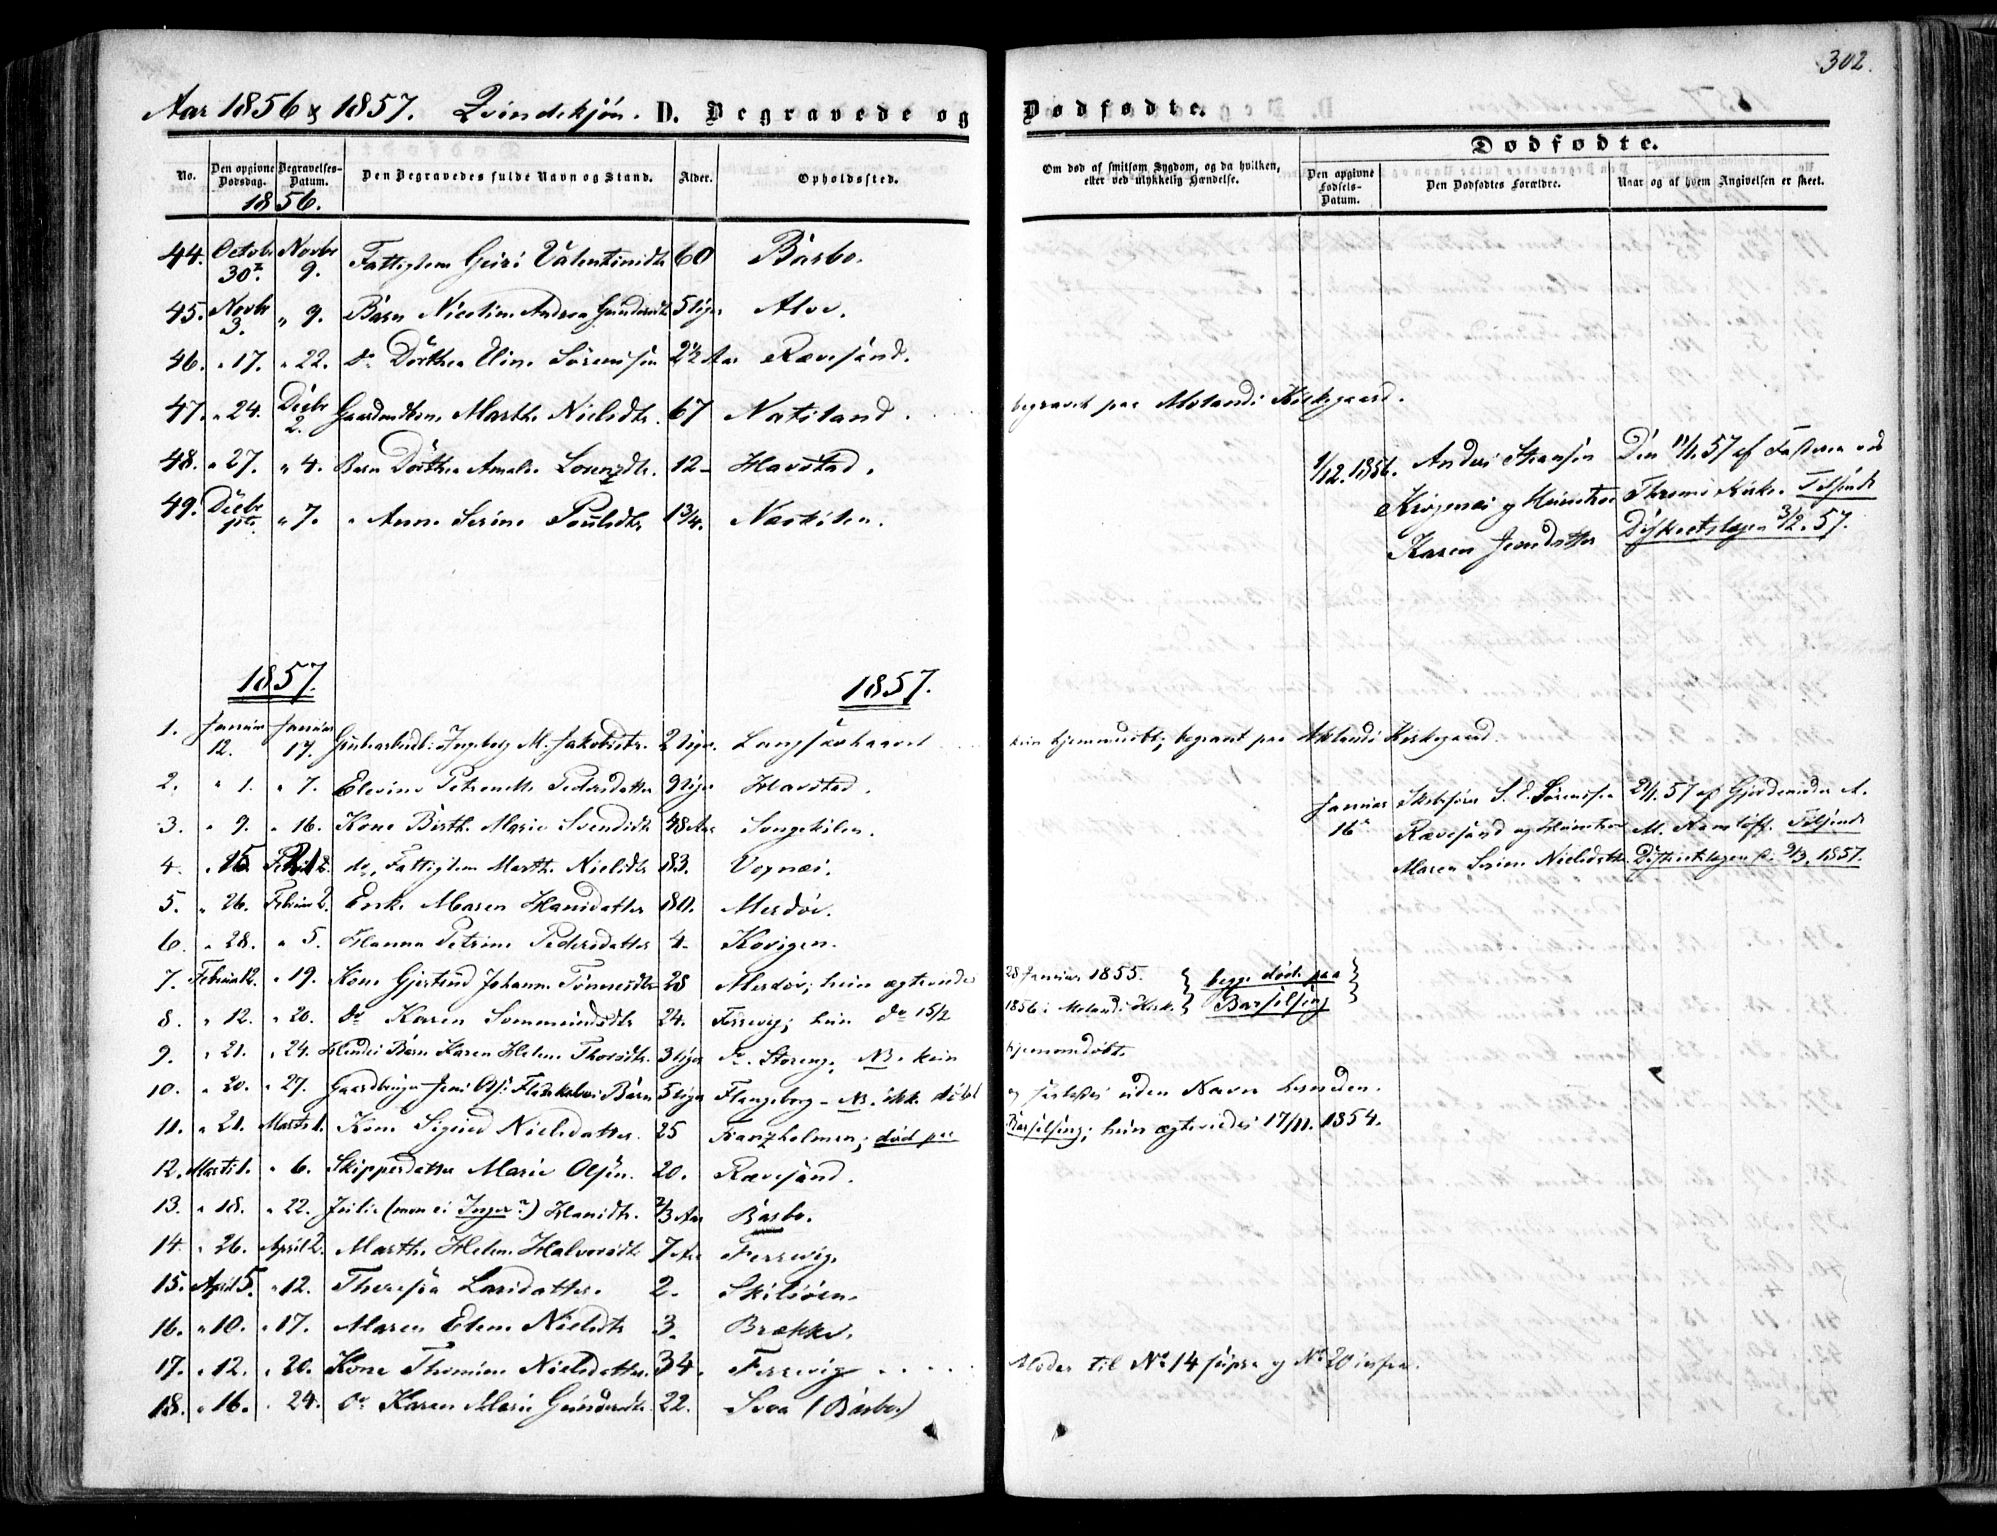 302.
Aar 1856 & 1857. Qvindekjøn. D. Begravede og Dødfødte.
Dødfødte.
No. Den opgivne Dødsdag. Begravelses-Datum. Den Begravedes fulde Navn og Stand. Alder. Opholdssted. Om død af smitsom Sygdom, og da hvilken, eller ved ulykkelig Hændelse. Den opgivne Fødsels-Datum. Den Dødfødtes Forældre. Naar og af hvem Angivelsen er skeet.
1856.
44. Octobr 30te Novbr 9. Fattiglem Guri Valentinsdtr 60 Barbo.
45. Novbr 3. " 9. Barn Nicoline Andrea Gundersdtr 5 Uger Alve.
46. " 17. " 22. do Dorthea Eline Sørensen 2½ Aar Rævesand.
47. " 24. Decbr 2. Marthe Nielsdtr. 67 Natsland. begravet paa Molands Kirkegaard.
48. " 27. " 4. Barn Dorthea Amalie Lorenzdtr. 12 Havstad.
49. Decbr 1ste " 7. " Anne Serine Poulsdtr 1¾. Næskilen.
1/12. 1856. Anders Steensen
og Hustrue
Karen Jensdatter
Den 11/1. 57 af Faderen
Thromø Kirke. Tilsendt
Distriktslægen 3/2. 57.
1857. 1857.
1. Januar 12. Januar 17. Ingeborg M. Jakobsdtr. 2 Uger. Langsæhaaved kun hjemmedøbt; begravet paa Molands Kirkegaard.
2. " 1. " 7. Elevine Petrenelle Pedersdatter 9 Uger Havstad.
3. " 9. " 16. Kone Birthe Marie Svendsdtr 48 Aar Songekilen.
4. " 15 21 do, Fattiglem Marthe Nielsdtr 83. Vognæs.
5. " 26. Februar 2. Enke Maren Hansdatter 80. Merdø.
6. " 28. " 5. Hanna Petrine Pedersdatter 4. Kovigen.
Januar 16de
Rævesand og Hustrue
Maren Serine Nielsdtr.
21/1. 57 af Gjordemoder A.
M. Ramløff. Tilsendt
Distriktslægen d. 9/3. 1857.
7. Februar 12. " 19. Kone Gjertrud Johanne Tønnesdtr 28 Merdø; hun ægteviedes 28 Januar 1855.
8. " 12. " 20. do Karen Sommundsdtr 24. Færevig; hun do 15/2 1856 i Molands Kirke.
begge døde paa
Barselseng
9. " 21. " 24. Barn Karen Helene Thorsdtr. 3 Uger Storeng. NB. kun hjemmedøbt.
10. " 20. " 27. Gaardbruger Jens Barn 5 Uger Flangeborg - NB. ikke døbt og uden Navn
11. " 21. Marts 1. Kone Sigrid Nielsdatter. 25 Franzholmen; død paa Barselseng; hun ægteviedes 17/11. 1854.
12. Marts 1. " 6. Skipperdatter Marie Olsen. 20. Rævesand.
13. " 18. " 22. Julie (mon ei Inger?) Hansdtr. 2/3 Aar Barbo.
14. " 26. April 2. Marthe Helene Halvorsdtr 7 Aar Færevig.
15. April 5. " 12. Theresia Larsdatter. 2. Skilsøen.
16. " 10. " 17. Maren Elene Nielsdtr 3. Brække.
17. " 12. " 20. Kone Thomine Nielsdatter. 34. Færevig . . . . Moder til No 14 supra og No 20 infra.
18. " 16. " 24. do Karen Marie Gundersdtr. 22. Svea (Barbo)